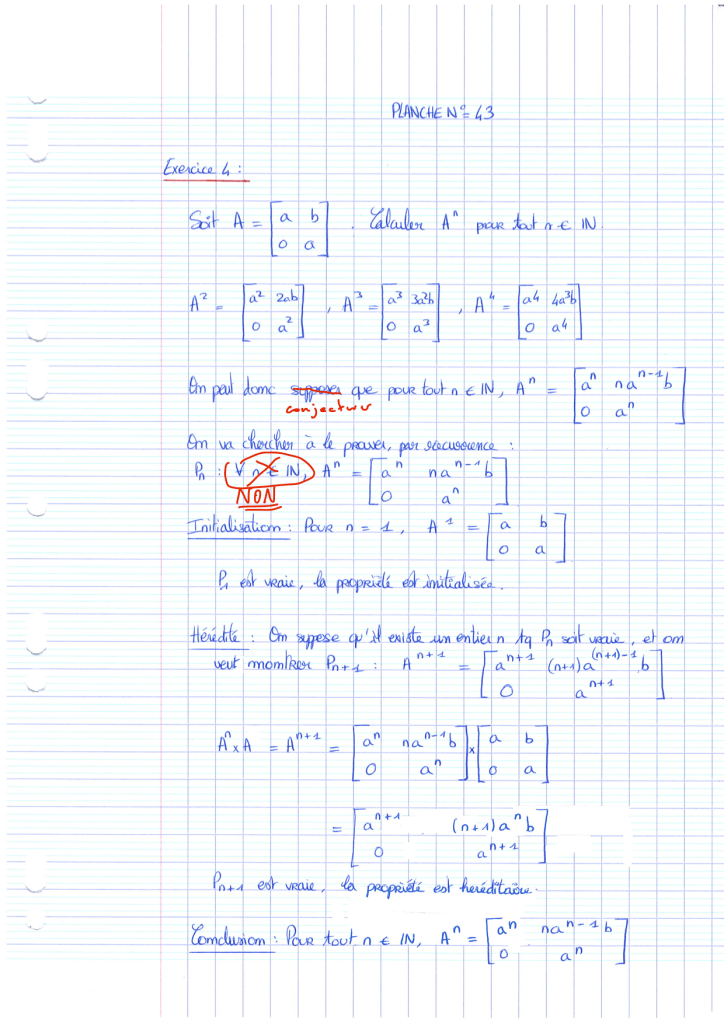 PLANCHE N°= 43
Exercice 4 :
Soit A = [a b ; 0 a] . Calculer Aⁿ pour tout n ∈ IN.
A² = [a² 2ab ; 0 a²] , A³ = [a³ 3a²b ; 0 a³] , A⁴ = [a⁴ 4a³b ; 0 a⁴]
On peut donc supposer que pour tout n ∈ IN, Aⁿ = [aⁿ naⁿ⁻¹b ; 0 aⁿ]
conjecturer
On va chercher à le prouver, par récurrence :
Pₙ : ∀ n ∈ IN, Aⁿ = [aⁿ naⁿ⁻¹b ; 0 aⁿ]
NON
Initialisation : Pour n = 1, A¹ = [a b ; 0 a]
P₁ est vraie, la propriété est initialisée.
Hérédité : On suppose qu'il existe un entier n tq Pₙ soit vraie, et on
veut montrer Pₙ₊₁ : Aⁿ⁺¹ = [aⁿ⁺¹ (n+1)a⁽ⁿ⁺¹⁾⁻¹b ; 0 aⁿ⁺¹]
Aⁿ × A = Aⁿ⁺¹ = [aⁿ naⁿ⁻¹b ; 0 aⁿ] × [a b ; 0 a]
= [aⁿ⁺¹ (n+1)aⁿb ; 0 aⁿ⁺¹]
Pₙ₊₁ est vraie, la propriété est heréditaire.
Conclusion : Pour tout n ∈ IN, Aⁿ = [aⁿ naⁿ⁻¹b ; 0 aⁿ]